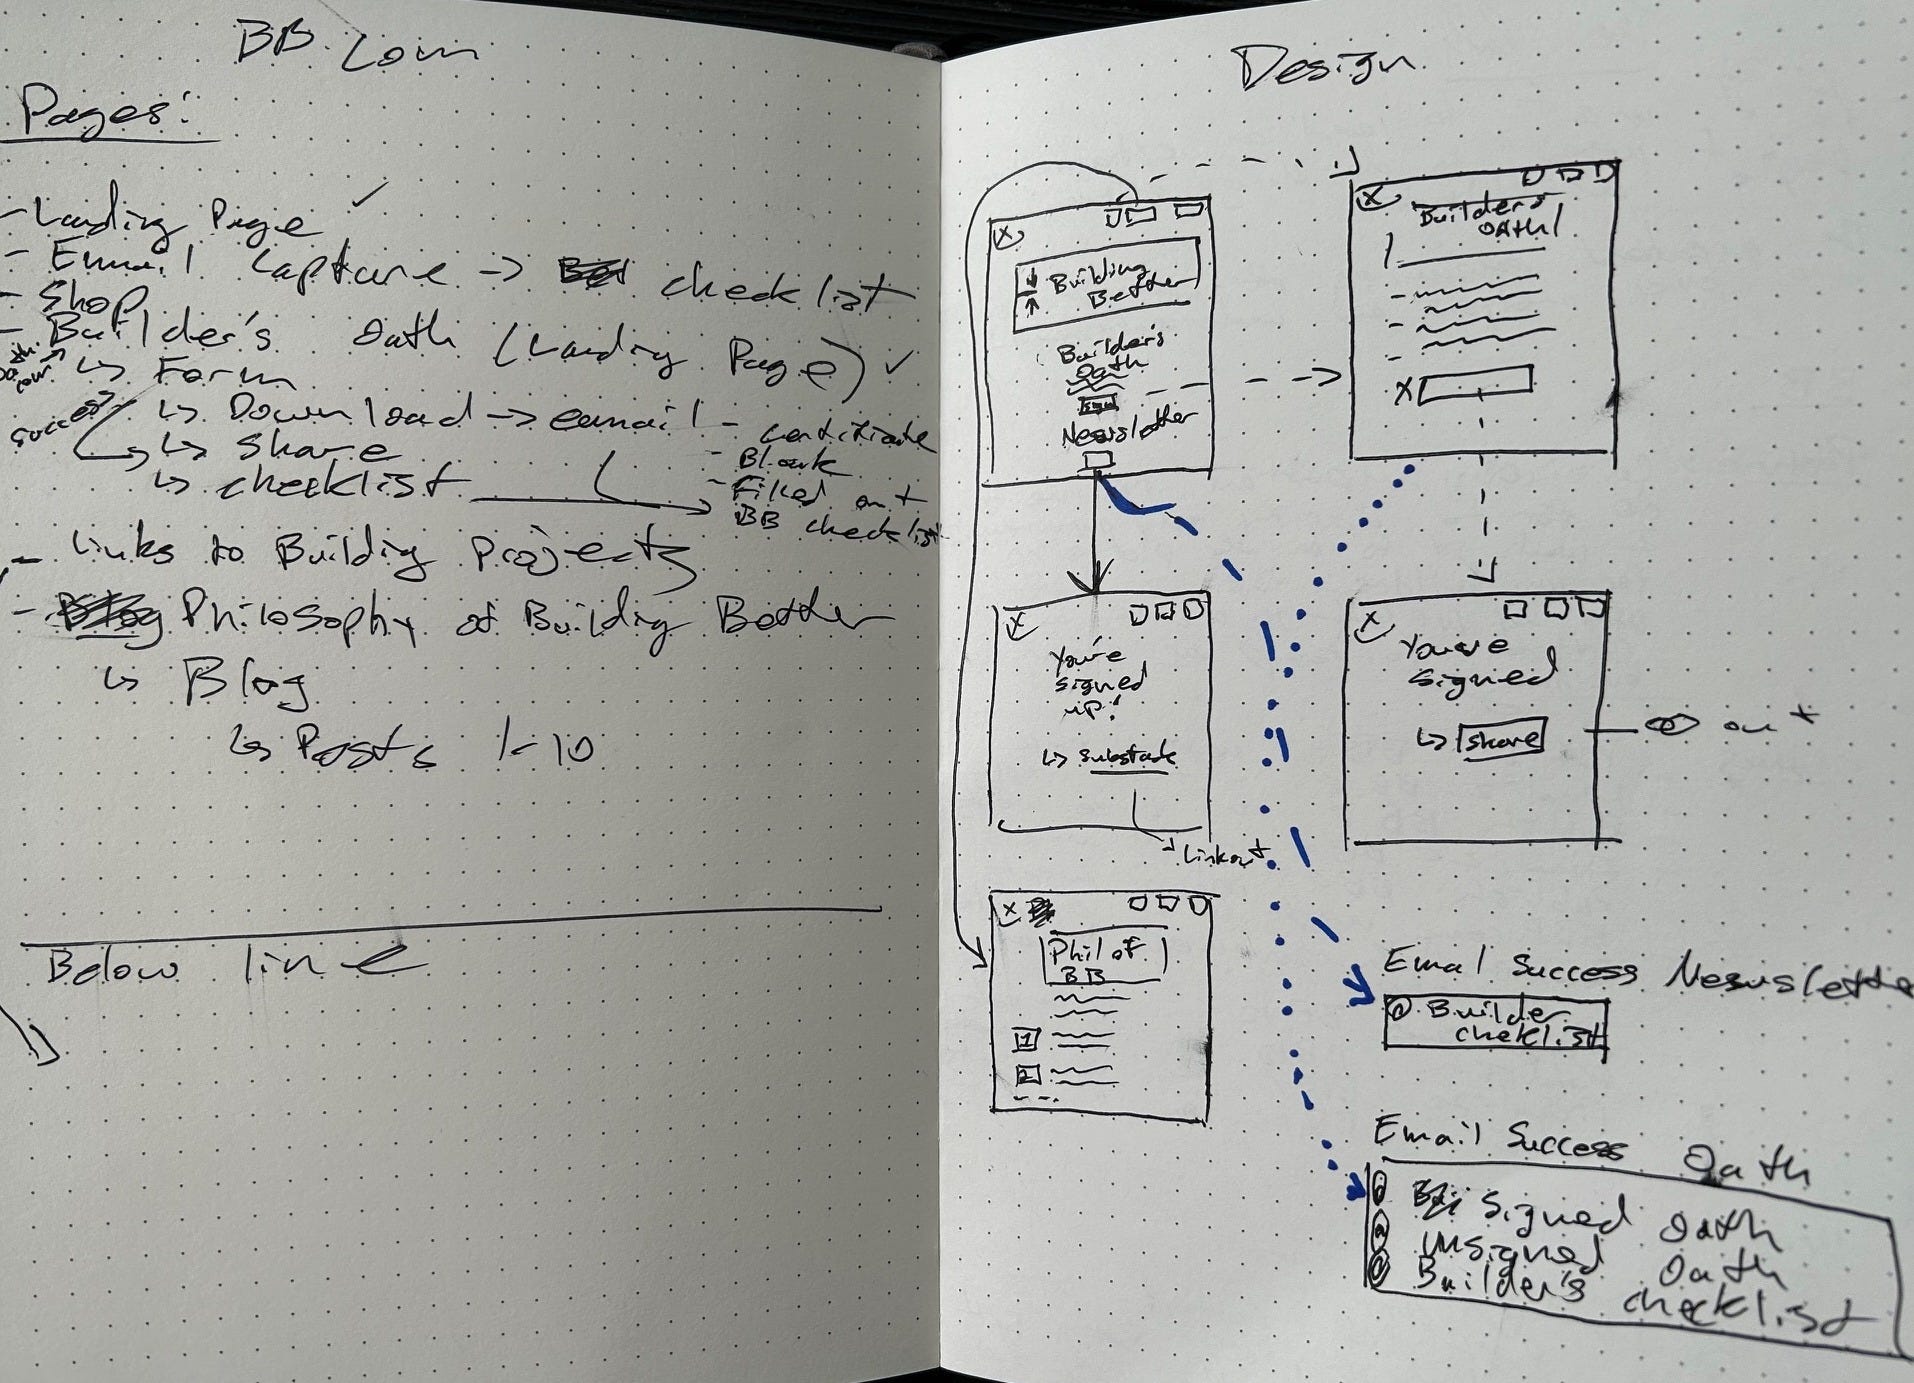 BB Com
Pages:
- Landing Page ✓
- Email Capture -> checklist
- Shop
- Builder's Oath (Landing Page) ✓
↳ Form
success?
↳ Download -> email - Certificate
↳ Share - Blank
↳ checklist - Filled out
BB checklist
- Links to Building Projects
- Philosophy of Building Better
↳ Blog
↳ Posts 1-10
Below line
Design
X
Building
Better
Builder's
Oath
sign
Newsletter
X
Builder's
Oath
X
X
You're
signed
up!
↳ Substack
Linkout
X
You're
signed
↳ share
out
X
Phil of
BB
1
2
Email Success Newsletter
@ Builder
cheklist
Email Success Oath
@ Signed Oath
@ unsigned Oath
@ Builder's checklist